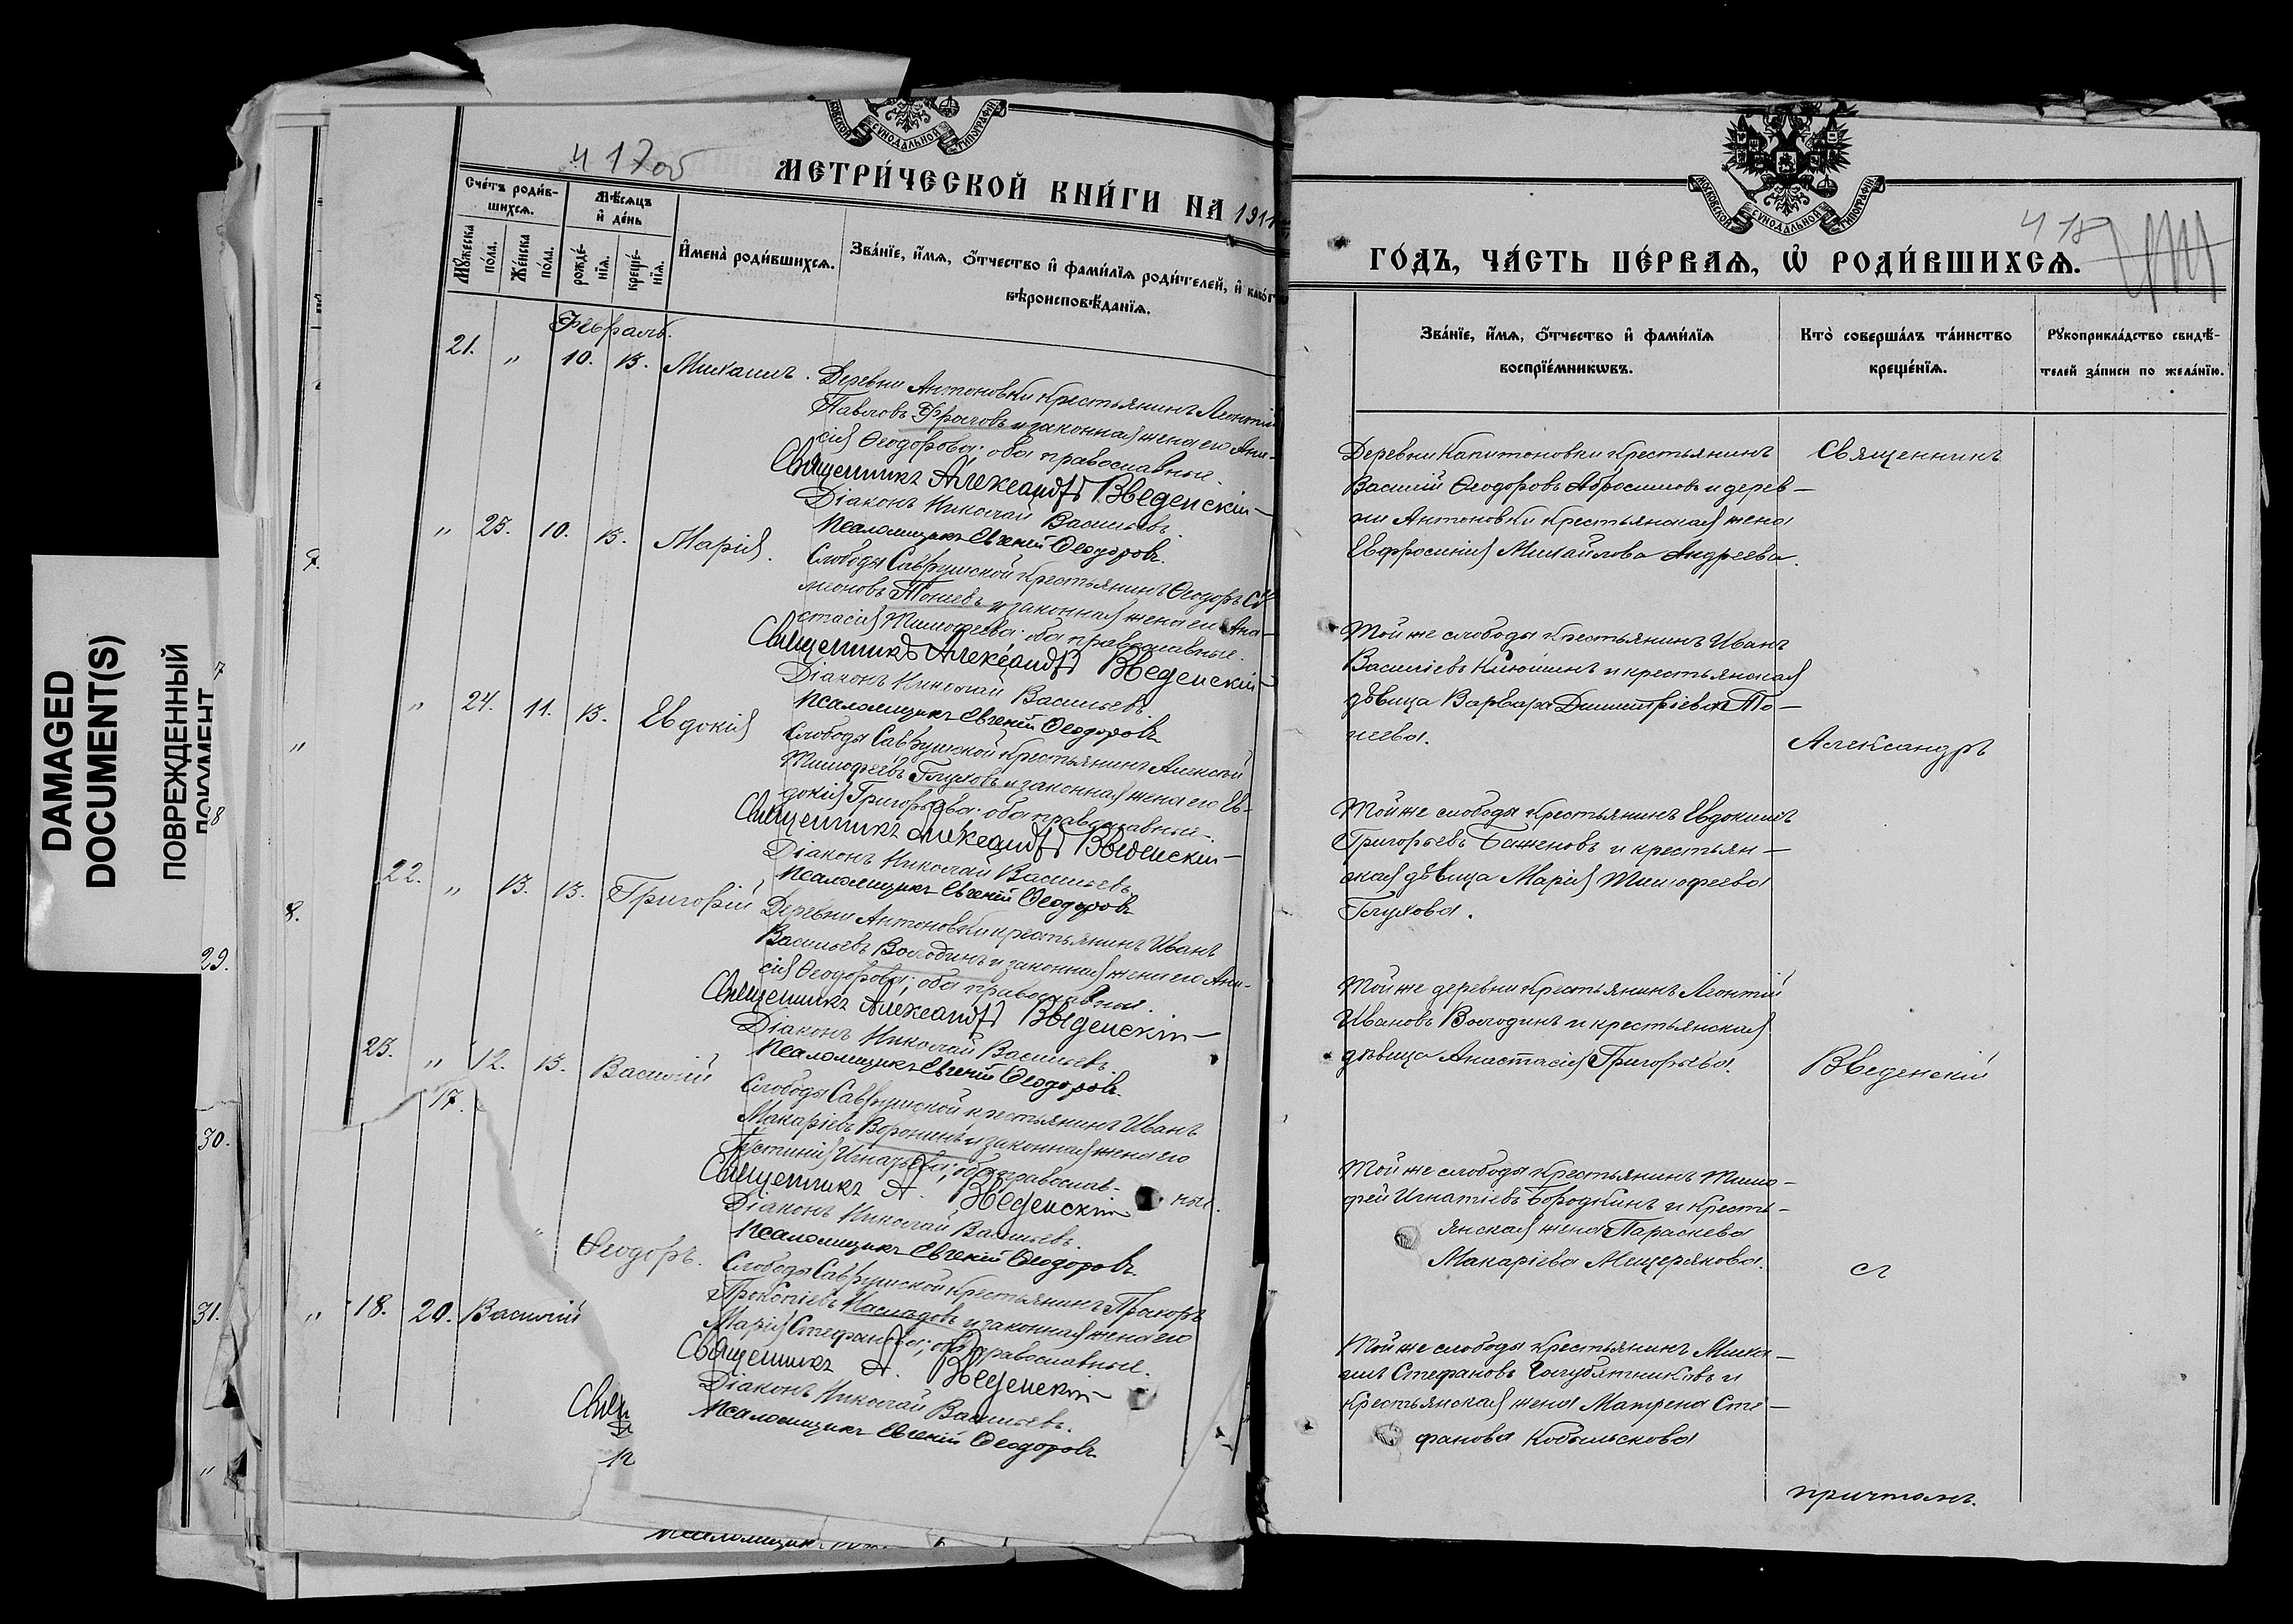 DAMAGED
DOCUMENT(S)
ПОВРЕЖДЕННЫЙ
ДОКУМЕНТ
417об
МОСКОВСКОЙ СѴНОДАЛЬНОЙ ТИПОГРАФІИ
МЕТРИ́ЧЕСКОЙ КНИ́ГИ НА 1911
Сче́тъ роди́в-
шихсѧ.
Мѣ́сѧцъ
и҆ де́нь
Мꙋ́жеска
по́ла.
Же́нска
по́ла.
рожде́-
нїѧ.
креще́-
нїѧ.
И҆мена̀ роди́вшихсѧ.
Зва́нїе, и҆́мѧ, ѻ҆́тчество и҆ фами́лїѧ роди́телей, и҆ како́г
вѣроисповѣ́данїѧ.
Февраль.
21. " 10. 13. Михаилъ.
Деревни Антоновки крестьянинъ Леонтій
Павловъ Фроловъ и законная жена его Ани-
сія Ѳеодорова; оба православные.
Священникъ Александръ Введенскій
Діаконъ Николай Васильевъ.
Псаломщикъ Евгеній Ѳеодоровъ.
" 23. 10. 13. Марія.
Слободы Саврушской крестьянинъ Ѳеодоръ Си
меоновъ Тонеевъ и законная жена его Ана-
стасія Тимофеева; оба православные.
Священникъ Александръ Введенскій
Діаконъ Николай Васильевъ.
Псаломщикъ Евгеній Ѳеодоровъ
" 24. 11. 13. Евдокія
Слободы Саврушской крестьянинъ Алексѣй
Тимофеевъ Глуховъ и законная жена его Ев-
докія Григорьева; оба православные.
Священникъ Александръ Введенскій
Діаконъ Николай Васильевъ.
Псаломщикъ Евгеній Ѳеодоровъ
22. " 13. 13. Григорій
Деревни Антоновки крестьянинъ Иванъ
Васильевъ Володинъ и законная жена его Ани-
сія Ѳеодорова; оба православные.
Священникъ Александръ Введенскій
Діаконъ Николай Васильевъ.
Псаломщикъ Евгеній Ѳеодоровъ.
23. " 12. 13. Василій
Слободы Саврушской крестьянинъ Иванъ
Макаріевъ Воронинъ и законная жена его
Іустинія Игнатьева; оба православ-
ные.
Священникъ А. Введенскій
Діаконъ Николай Васильевъ.
Псаломщикъ Евгеній Ѳеодоровъ.
17. " Ѳеодоръ.
Слободы Саврушской крестьянинъ Прохоръ
Прокопіевъ Наслѣдовъ и законная жена его
Марія Стефанова; оба православные.
Священникъ А. Введенскій
Діаконъ Николай Васильевъ.
Псаломщикъ Евгеній Ѳеодоровъ.
" 18. 20. Василій
Свящ
7.
"
8.
7
8
29.
30.
31.
"
418
МОСКОВСКОЙ СѴНОДАЛЬНОЙ ТИПОГРАФІИ
ГО́ДЪ, ЧА́СТЬ ПЕ́РВАѦ, Ѡ҆ РОДИ́ВШИХСѦ.
Зва́нїе, и҆́мѧ, ѻ҆́тчество и҆ фами́лїѧ
воспрїе́мникѡвъ.
Кто̀ соверша́лъ та́инство
креще́нїѧ.
Рꙋкоприкла́дство свидѣ́-
телей за́писи по жела́нїю.
Деревни Капитоновки крестьянинъ
Василій Ѳеодоровъ Абросимовъ и дерев-
ни Антоновки крестьянская жена
Евфросинія Михайлова Андреева.
Той же слободы крестьянинъ Иванъ
Василіевъ Клюшинъ и крестьянская
дѣвица Варвара Димитріева То-
неева.
Той же слободы крестьянинъ Евдокимъ
Григорьевъ Баженовъ и крестьян-
ская дѣвица Марія Тимофеева
Глухова.
Той же деревни крестьянинъ Леонтій
Ивановъ Володинъ и крестьянская
дѣвица Анастасія Григорьева.
Той же слободы крестьянинъ Тимо-
фей Игнатіевъ Бородкинъ и кресть-
янская жена Параскева
Макаріева Мещерякова.
Той же слободы крестьянинъ Миха-
илъ Стефановъ Голубятниковъ и
крестьянская жена Матрена Сте-
фанова Кобыльскова
Священникъ
Александръ
Введенскій
съ
причтомъ.